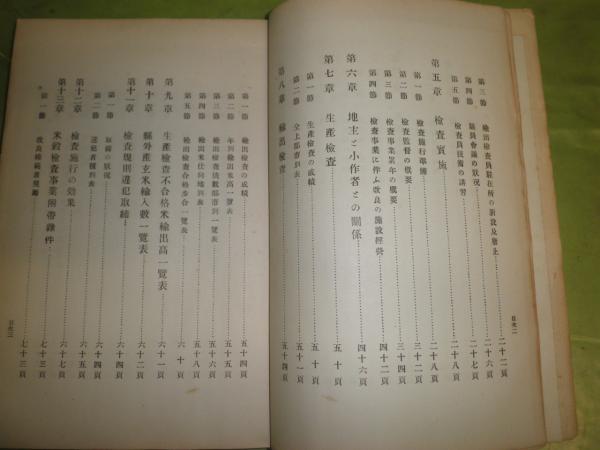 第三節 輸出檢査員駐在所の新設及廢止……二十二頁
第四節 職員會議の狀況……二十六頁
第五節 檢査員技術の講習……二十七頁
第五章 檢査實施……二十八頁
第一節 檢査施行準備……二十八頁
第二節 檢査監督の概要……三十四頁
第三節 檢査事業累年の概要……三十四頁
第四節 檢査事業に伴ふ改良の施設經營……四十二頁
第六章 地主と小作者との關係……四十六頁
第七章 生產檢査……五十頁
第一節 生產檢査の成績……五十頁
第二節 仝上郡市別表……五十一頁
第八章 輸出檢査……五十四頁
目次二
第一節 輸出檢査の成績……五十四頁
第二節 年別輸出米高一覽表……五十五頁
第三節 輸出檢査個數郡市別一覽表……五十六頁
第四節 輸出米仕向地別表……五十八頁
第五節 輸出檢査合格步合一覽表……六十頁
第九章 生產檢査不合格米輸出高一覽表……六十一頁
第十章 縣外產玄米輸入數一覽表……六十二頁
第十一章 檢査規則違犯取締……六十四頁
第一節 取締の狀況……六十四頁
第二節 違犯者種別表……六十四頁
第十二章 檢査施行の効果……六十五頁
第十三章 米穀檢査事業附帶錄件……六十七頁
第一節……七十三頁
目次三